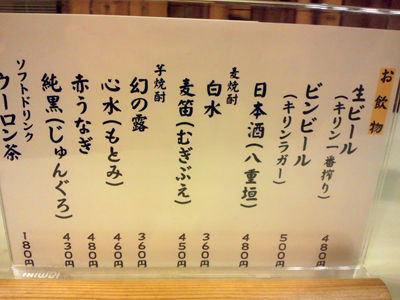 お飲物
生ビール
(キリン一番搾り) 480円
ビンビール
(キリンラガー) 500円
日本酒(八重垣) 480円
麦焼酎
白水 360円
麦笛(むぎぶえ) 450円
芋焼酎
幻の露 360円
心水(もとみ) 460円
赤うなぎ 480円
純黒(じゅんぐろ) 430円
ソフトドリンク
ウーロン茶 180円